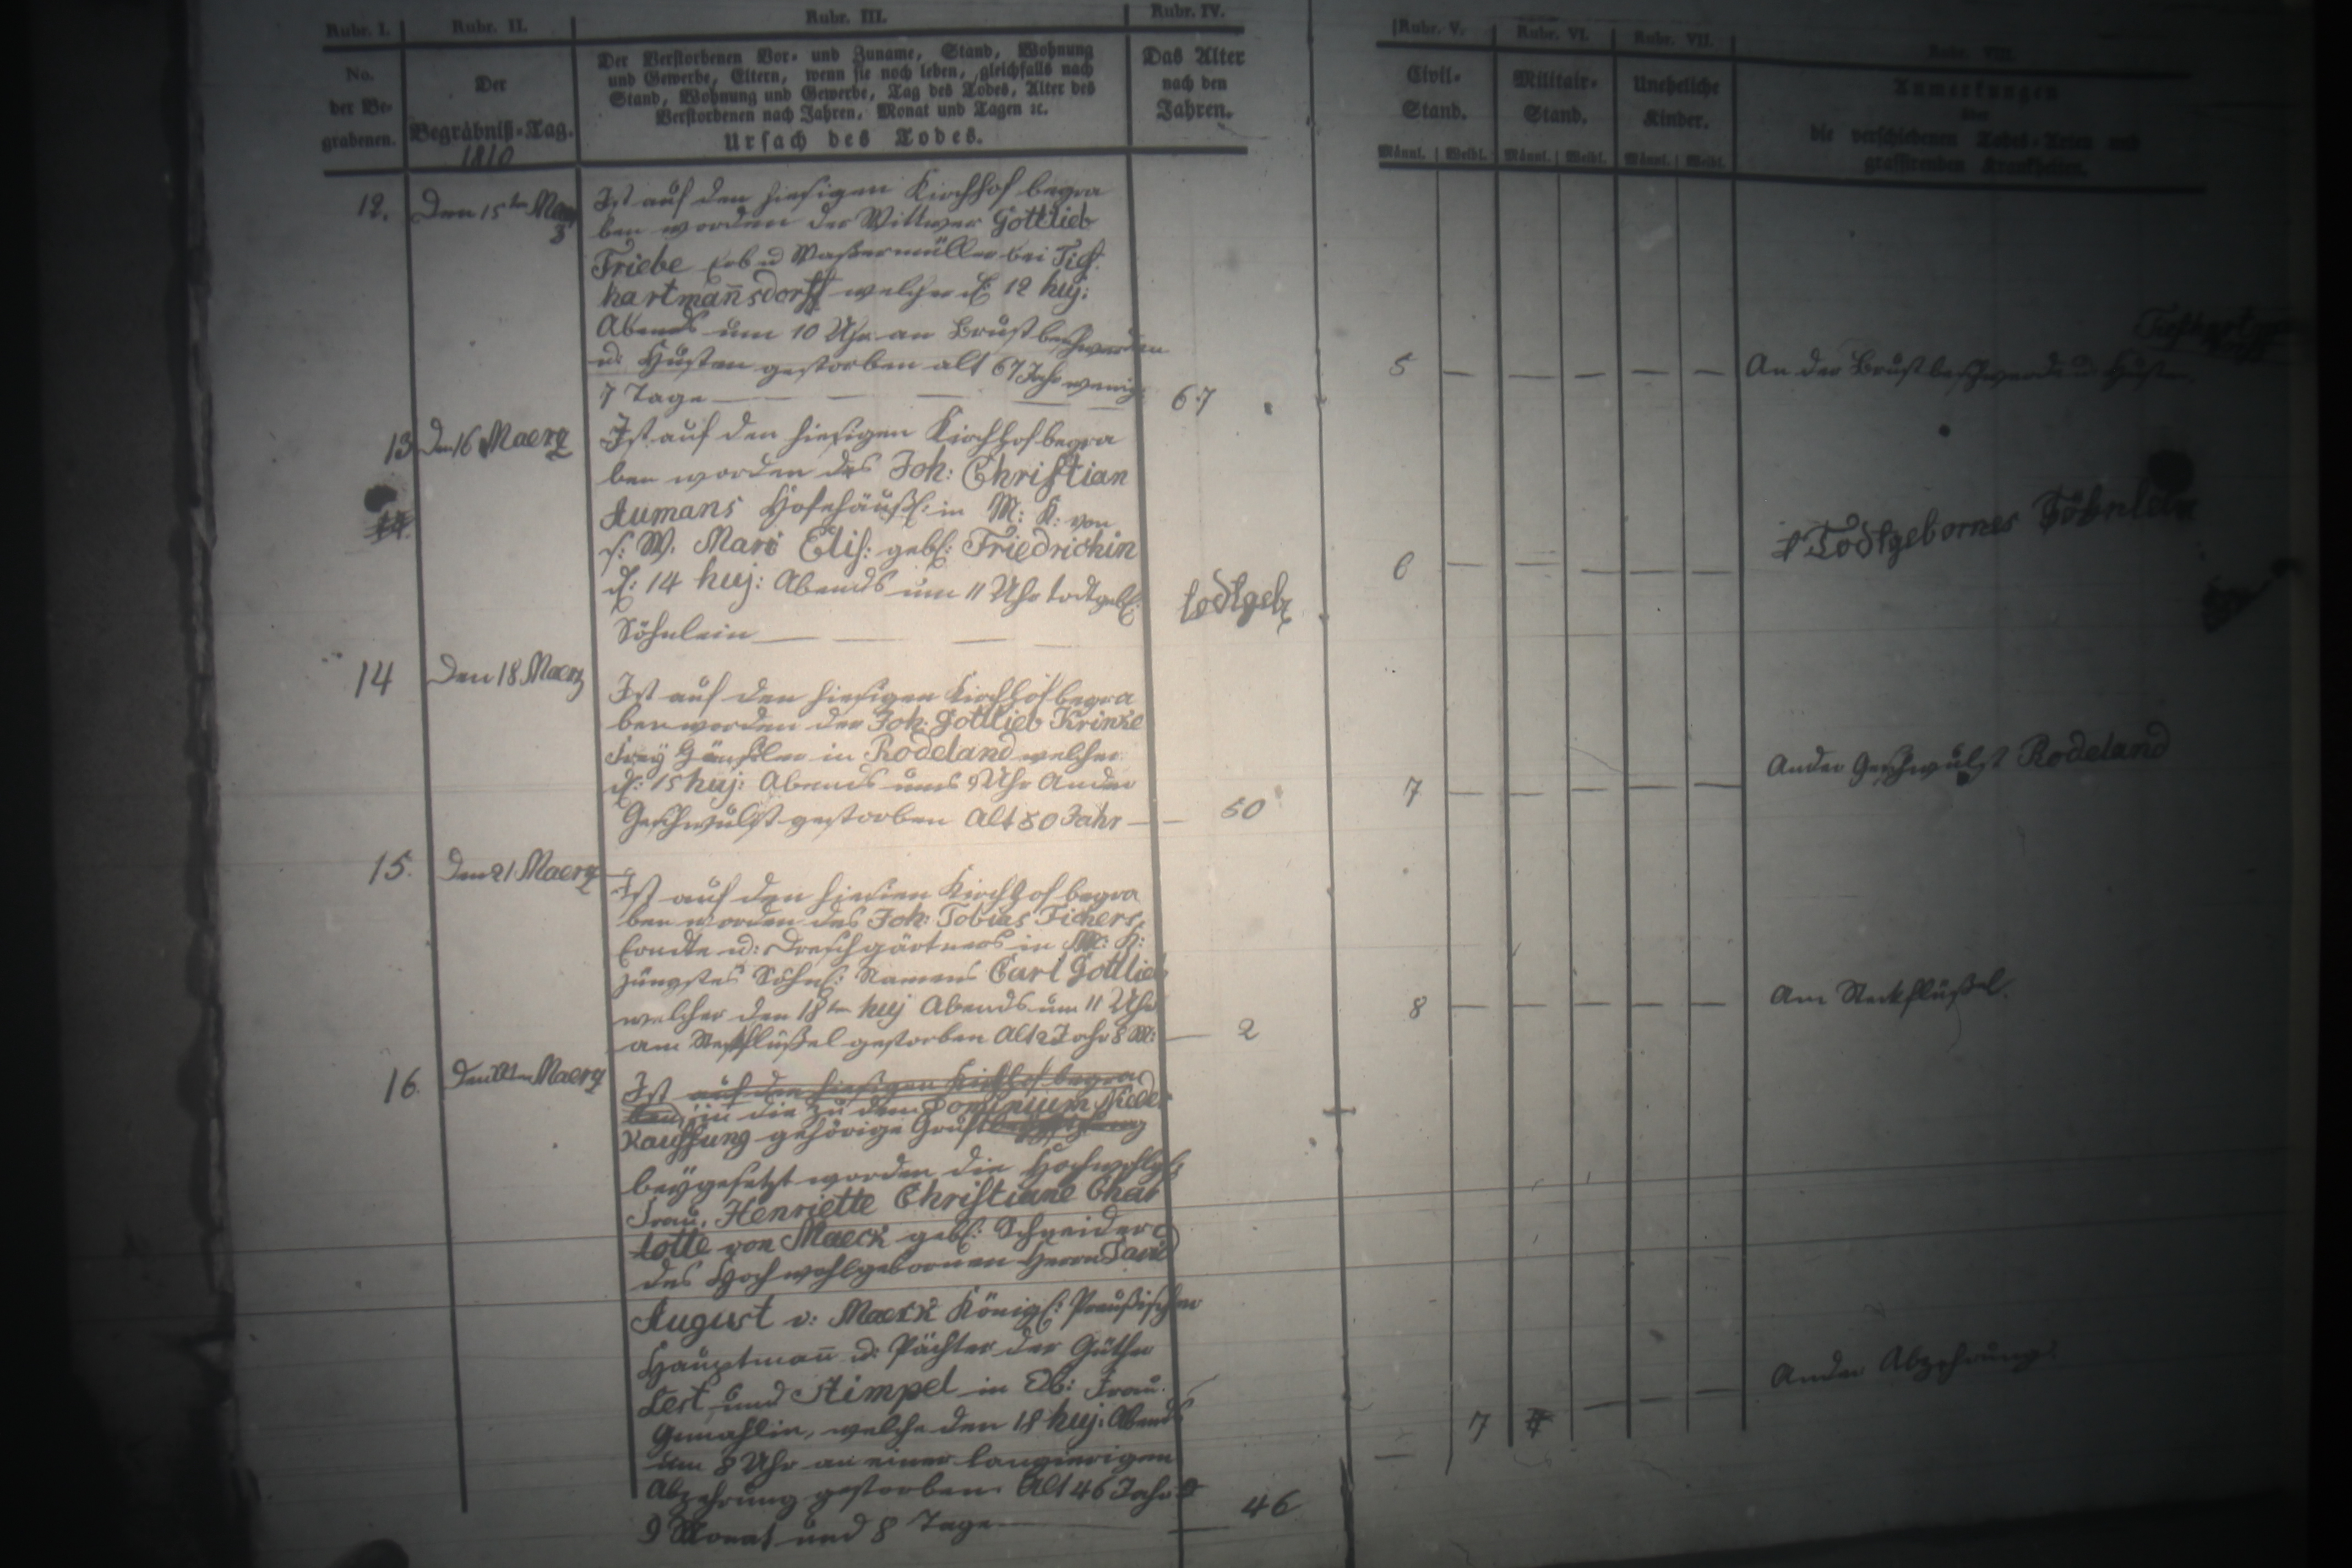 Rubr. I.
No.
der Be-
grabenen.
Rubr. II.
Der
Begräbniß-Tag.
1810
Rubr. III.
Der Verstorbenen Vor- und Zuname, Stand, Wohnung
und Gewerbe, Eltern, wenn sie noch leben, gleichfalls nach
Stand, Wohnung und Gewerbe, Tag des Todes, Alter des
Verstorbenen nach Jahren, Monat und Tagen ꝛc.
Ursach des Todes.
Rubr. IV.
Das Alter
nach den
Jahren.
Rubr. V.
Civil-
Stand.
Männl. Weibl.
Rubr. VI.
Militair-
Stand.
Männl. Weibl.
Rubr. VII.
Uneheliche
Kinder.
Männl. Weibl.
Rubr. VIII.
Anmerkungen
über
die verschiedenen Todes-Arten und
grassirenden Krankheiten.
12.
Den 15ten Maerz
Ist auf den hiesigen Kirchhof begra
ben worden der Wittwer Gottlieb
Friebe Erb u Waßermüller bei Tief
hartman̄sdorff welcher d: 12 huj:
Abends um 10 Uhr an Brustbeschwerden
u: Husten gestorben alt 67 Jahr wenig
7 Tage
67
5 — — — — —
An der Brustbeschwerde u Husten
13
Den 16 Maerz
Ist auf den hiesigen Kirchhof begra
ben worden des Joh: Christian
Aumans Hofehäusl: in M: K: von
s: W. Mari Elis: geb: Friedrichin
d: 14 huj: Abends um 11 Uhr todtgeb:
Söhnlein
todtgeb
6 — — — — —
Todtgebornes Söhnlein
14
Den 18 Maerz
Ist auf den hiesigen Kirchhof begra
ben worden der Joh: Gottlieb Krinke
Frey Häusler in Rodeland welcher
d: 15 huj: Abends um 9 Uhr An der
Geschwulst gestorben Alt 50 Jahr
50
7 — — — — —
An der Geschwulst Rodeland
15.
Den 21 Maerz
Ist auf den hiesigen Kirchhof begra
ben worden des Joh: Tobias
u: Dreschgärtners in M: K:
jüngstes Söhnl: Namens Carl Gottlieb
welcher den 18ten huj Abends um 11 Uhr
am Steckflüßel gestorben Alt 2 Jahr 8 M:
2
8 — — — — —
Am Steckflüßel.
16.
Den Maerz
Ist auf den hiesigen Kirchhof begra
ben in die zu dem Dominium Nieder
Kauffung gehörige Gruft
beygesetzt worden die
Frau, Henriette Christiane Char
lotte von Maeck geb: Schneider
des Hochwohlgebornen Herrn David
August v: Maeck Königl: Preußischen
Hauptman̄ u: Pächter der Güther
Lest und Stimpel in Frau
Gemahlin, welche den 18 huj: Abends
um 8 Uhr an einer langwierigen
Abzehrung gestorben Alt 46 Jahr
9 Monat und 8 Tage
46
— 7 — —
An der Abzehrung